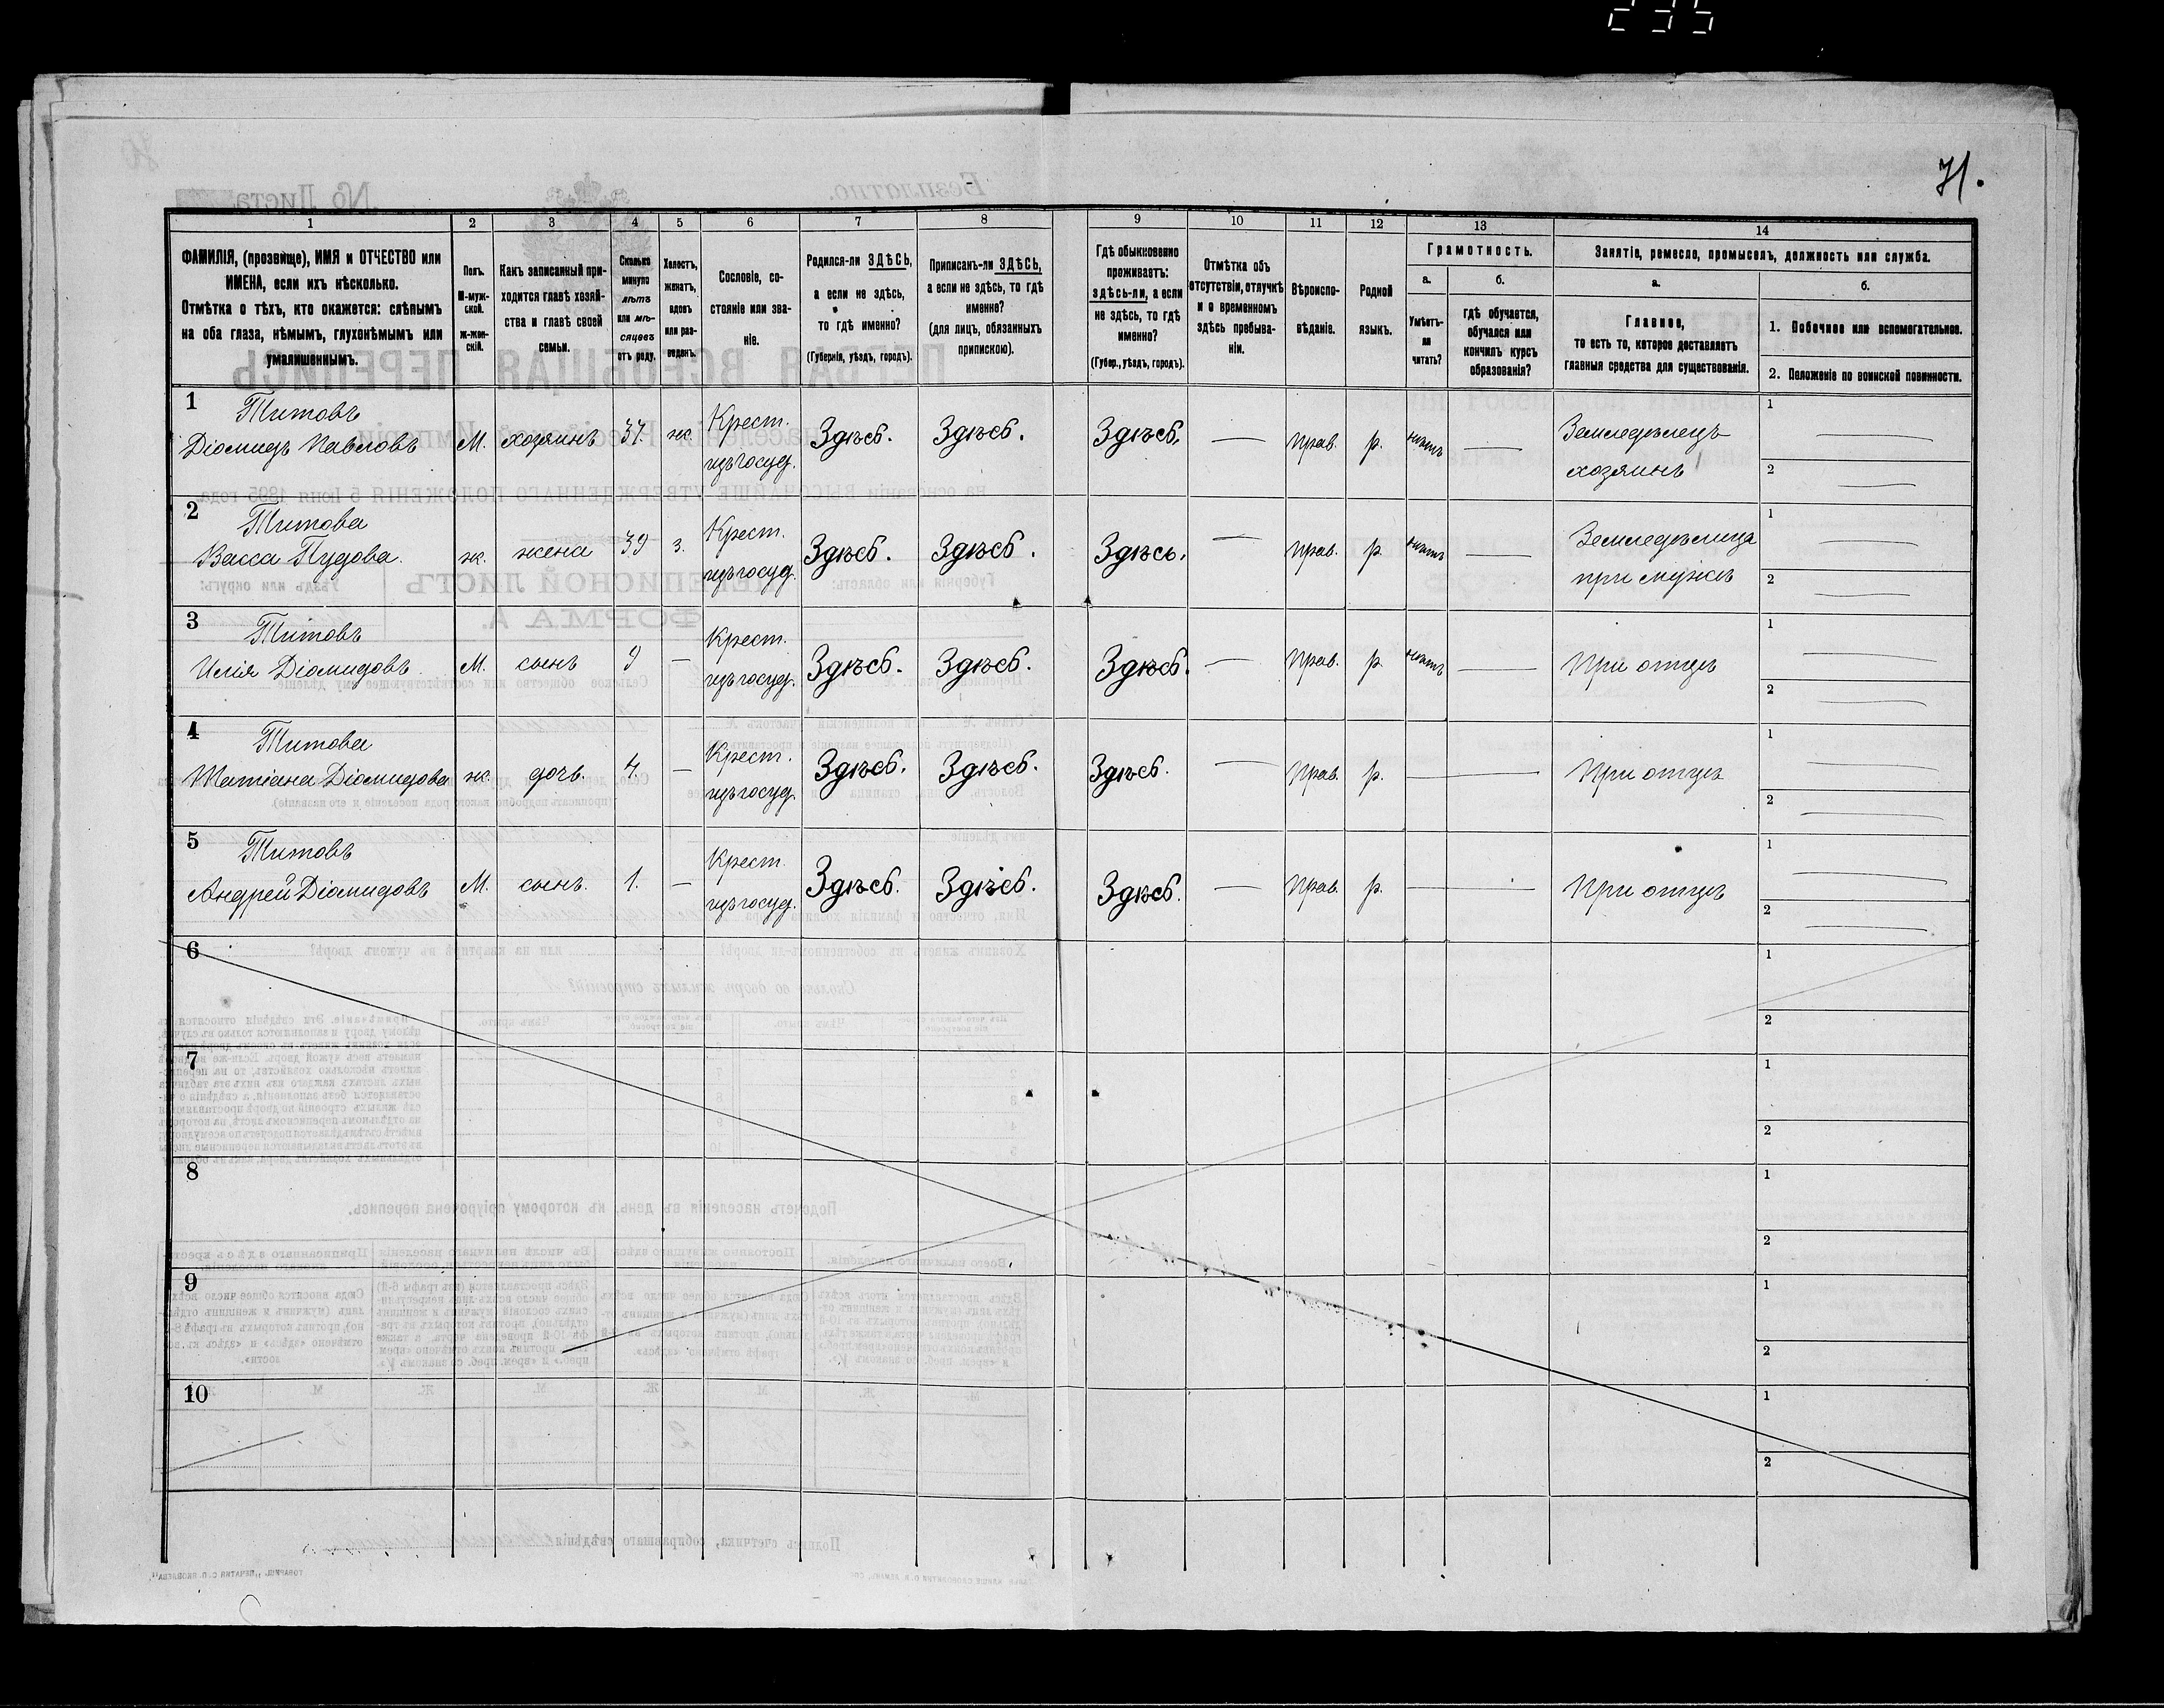 235
71.
1
2
3
4
5
6
7
8
9
10
11
12
13
14
ФАМИЛІЯ, (прозвище), ИМЯ и ОТЧЕСТВО или
ИМЕНА, если ихъ нѣсколько.
Отмѣтка о тѣхъ, кто окажется: слѣпымъ
на оба глаза, нѣмымъ, глухонѣмымъ или
умалишеннымъ.
Полъ.
М-муж-
ской.
ж-жен-
скій.
Какъ записанный при-
ходится главѣ хозяй-
ства и главѣ своей
семьи.
Сколько
минуло
лѣтъ
или мѣ-
сяцевъ
отъ роду.
Холостъ,
женатъ,
вдовъ
или раз-
веденъ.
Сословіе, со-
стояніе или зва-
ніе.
Родился-ли ЗДѢСЬ,
а если не здѣсь,
то гдѣ именно?
(Губернія, уѣздъ, городъ).
Приписанъ-ли ЗДѢСЬ,
а если не здѣсь, то гдѣ
именно?
(для лицъ, обязанныхъ
припискою).
Гдѣ обыкновенно
проживаетъ:
здѣсь-ли, а если
не здѣсь, то гдѣ
именно?
(Губер., уѣздъ, городъ).
Отмѣтка объ
отсутствіи, отлучкѣ
и о временномъ
здѣсь пребыва-
ніи.
Вѣроиспо-
вѣданіе.
Родной
языкъ.
Грамотность.
а.
Умѣетъ-
ли
читать?
б.
гдѣ обучается,
обучался или
кончилъ курсъ
образованія?
Занятіе, ремесло, промыселъ, должность или служба.
а.
Главное,
то есть то, которое доставляетъ
главныя средства для существованія.
б.
1. Побочное или вспомогательное.
2. Положеніе по воинской повинности.
1 Титовъ
Діомидъ Павловъ М. хозяинъ 37. ж. Крест. изъ госуд. Здѣсь. Здѣсь. Здѣсь. — прав. р. нѣтъ — Земледѣлецъ хозяинъ
1 —
2 —
2 Титова
Васса Пудова. ж. жена 39 з. Крест. изъ госуд. Здѣсь. Здѣсь. Здѣсь. — прав. р. нѣтъ — Земледѣлица при мужѣ
1 —
2 —
3 Титовъ
Илія Діомидовъ. М. сынъ 9 — Крест. изъ госуд. Здѣсь. Здѣсь. Здѣсь. — прав. р. нѣтъ — При отцѣ
1 —
2 —
4 Титова
Татіана Діомидова ж. дочь. 4. — Крест. изъ госуд. Здѣсь. Здѣсь. Здѣсь. — прав. р. — При отцѣ
1 —
2 —
5 Титовъ
Андрей Діомидовъ М. сынъ. 1. — Крест. изъ госуд. Здѣсь. Здѣсь. Здѣсь. — прав. р. — При отцѣ
1 —
2 —
6
1
2
7
1
2
8
1
2
9
1
2
10
1
2